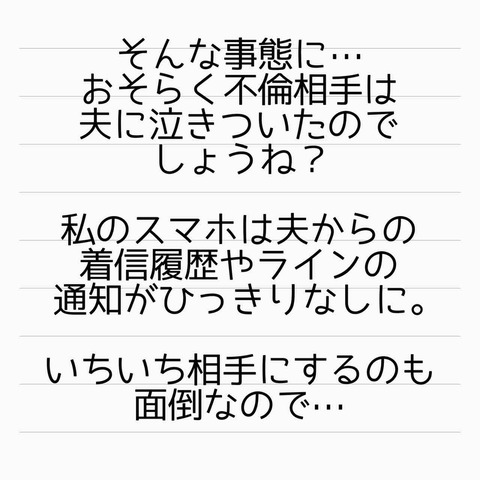 そんな事態に…
おそらく不倫相手は
夫に泣きついたので
しょうね？
私のスマホは夫からの
着信履歴やラインの
通知がひっきりなしに。
いちいち相手にするのも
面倒なので…